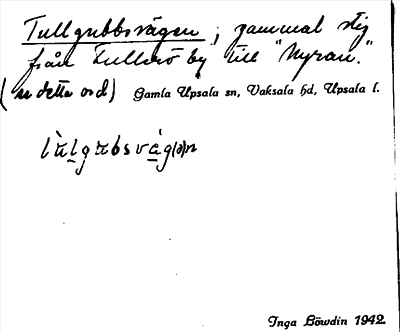 Tullgrubbsvägen; gammal stig
från Tullerö by till "Myran."
(se detta ord) Gamla Upsala sn, Vaksala hd, Upsala l.
Inga Löwdin 1942.